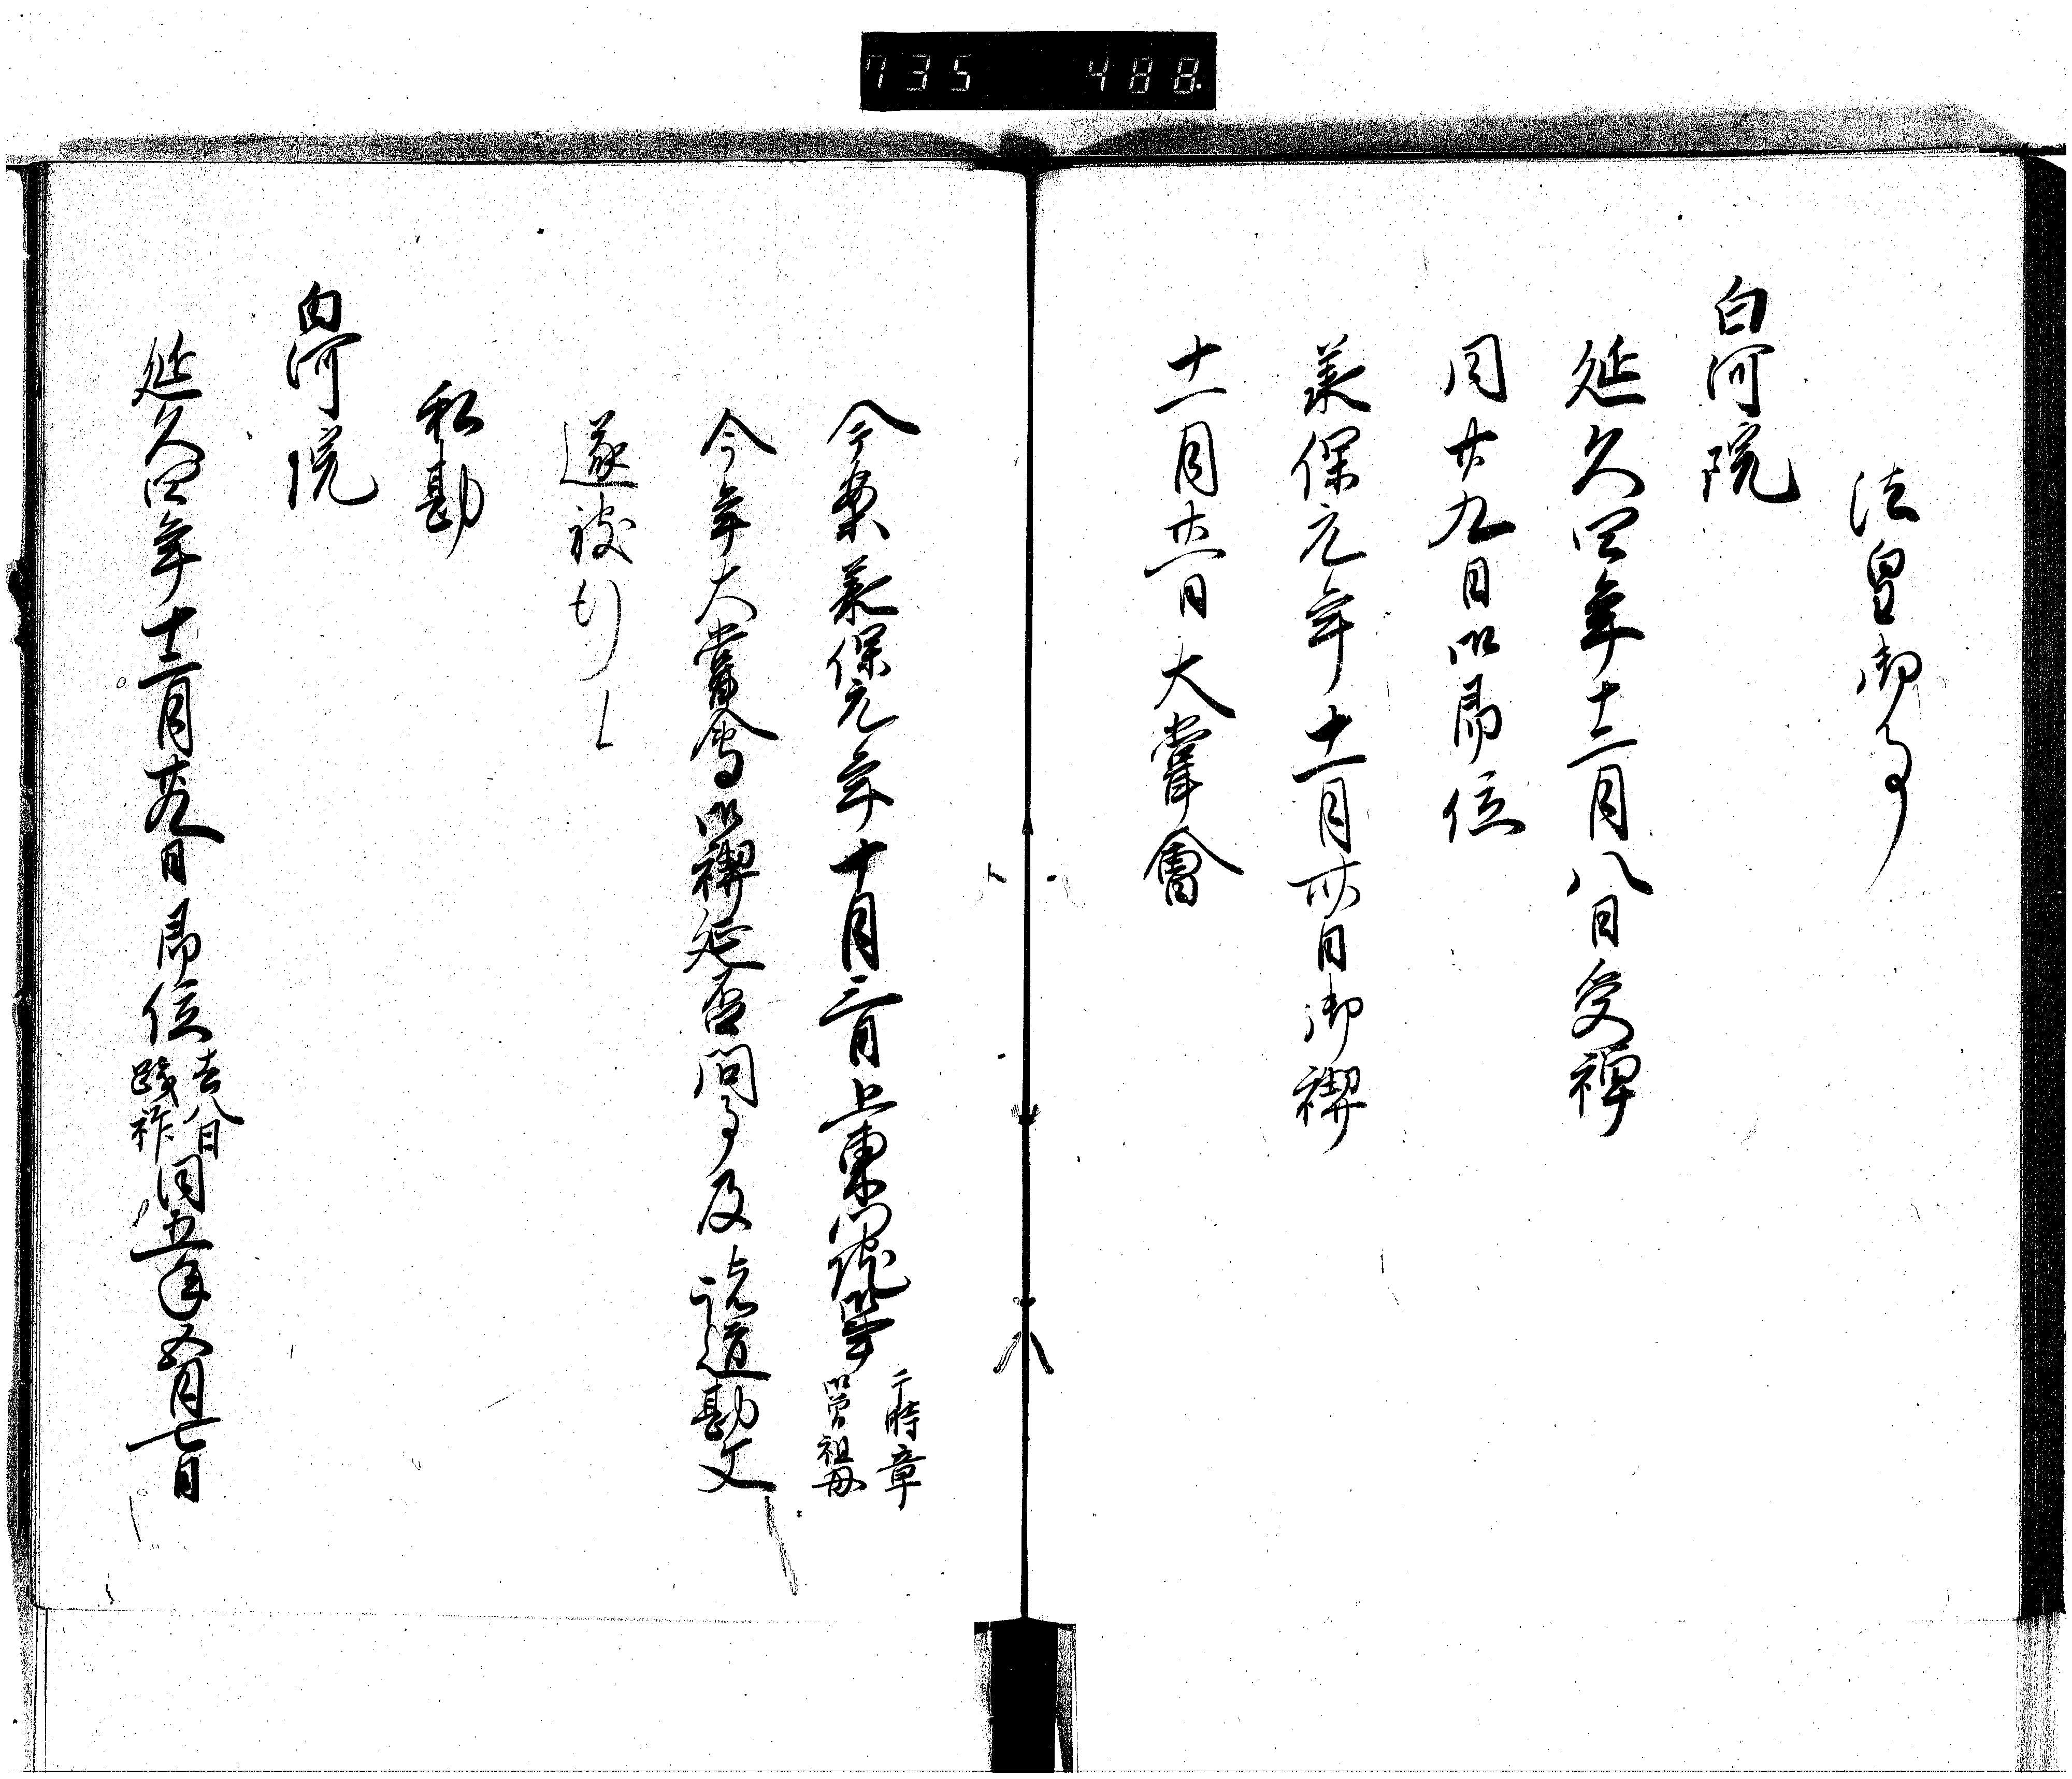 735 488
法皇御事
白河院
延久四年十二月八日受禅
同廿九日御即位
承保元年十一月卅日御禊
十一月廿一日大嘗會
今案承保元年十月三日上東門院崩
二時章
御曽祖母
今年大嘗會御禊延否問事及諸道勘文
遂被行
私勘
白河院
延久四年十二月廿九日即位
去八日
践祚
同五年五月七日